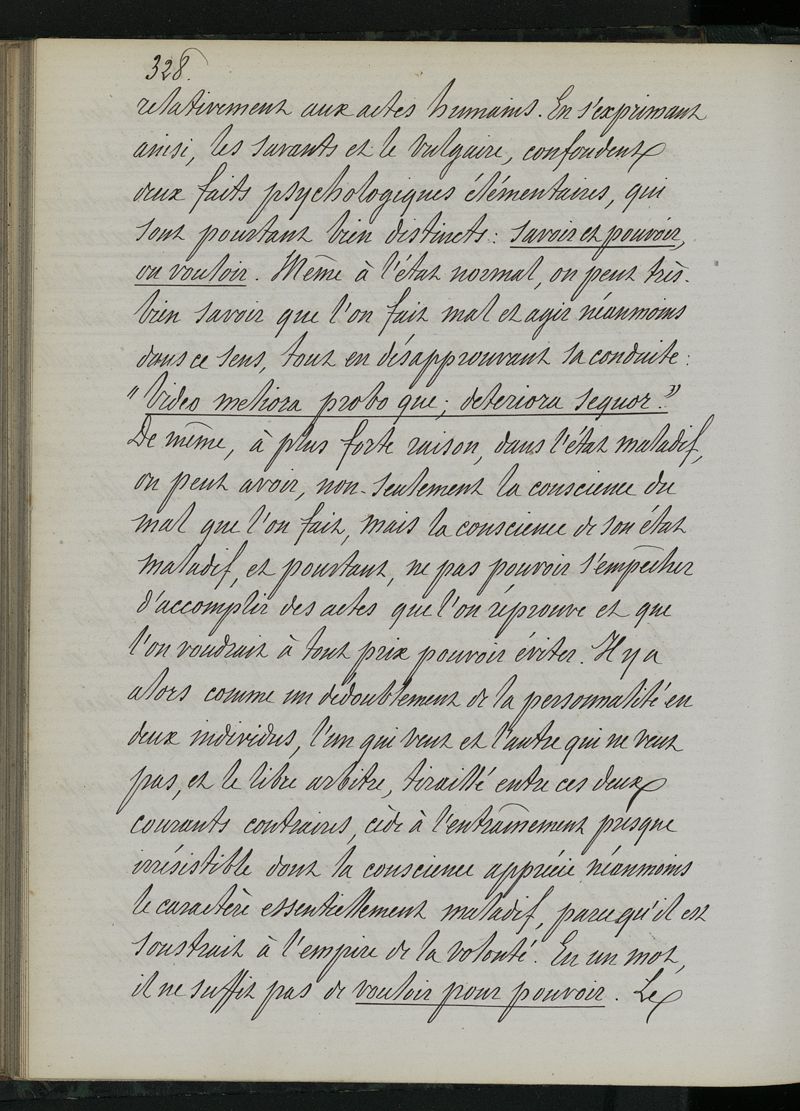 328.
relativement aux actes humains. En s'exprimant
ainsi, les savants et le vulgaire, confondent
deux faits psychologiques élémentaires, qui
sont pourtant bien distincts : savoir et pouvoir,
ou vouloir. Même à l'état normal, on peut très-
bien savoir que l'on fait mal et agir néanmoins
dans ce sens, tout en désapprouvant sa conduite :
"Video meliora probo que; deteriora sequor."
De même, à plus forte raison, dans l'état maladif,
on peut avoir, non-seulement la conscience du
mal que l'on fait, mais la conscience de son état
maladif, et pourtant, ne pas pouvoir s'empêcher
d'accomplir des actes que l'on réprouve et que
l'on voudrait à tout prix pouvoir éviter. Il y a
alors comme un dédoublement de la personnalité en
deux individus, l'un qui veut et l'autre qui ne veut
pas, et le libre arbitre, tiraillé entre ces deux
courants contraires, cède à l'entraînement presque
irrésistible dont la conscience apprécie néanmoins
le caractère essentiellement maladif, parce qu'il est
soustrait à l'empire de la volonté. En un mot,
il ne suffit pas de vouloir pour pouvoir. Le